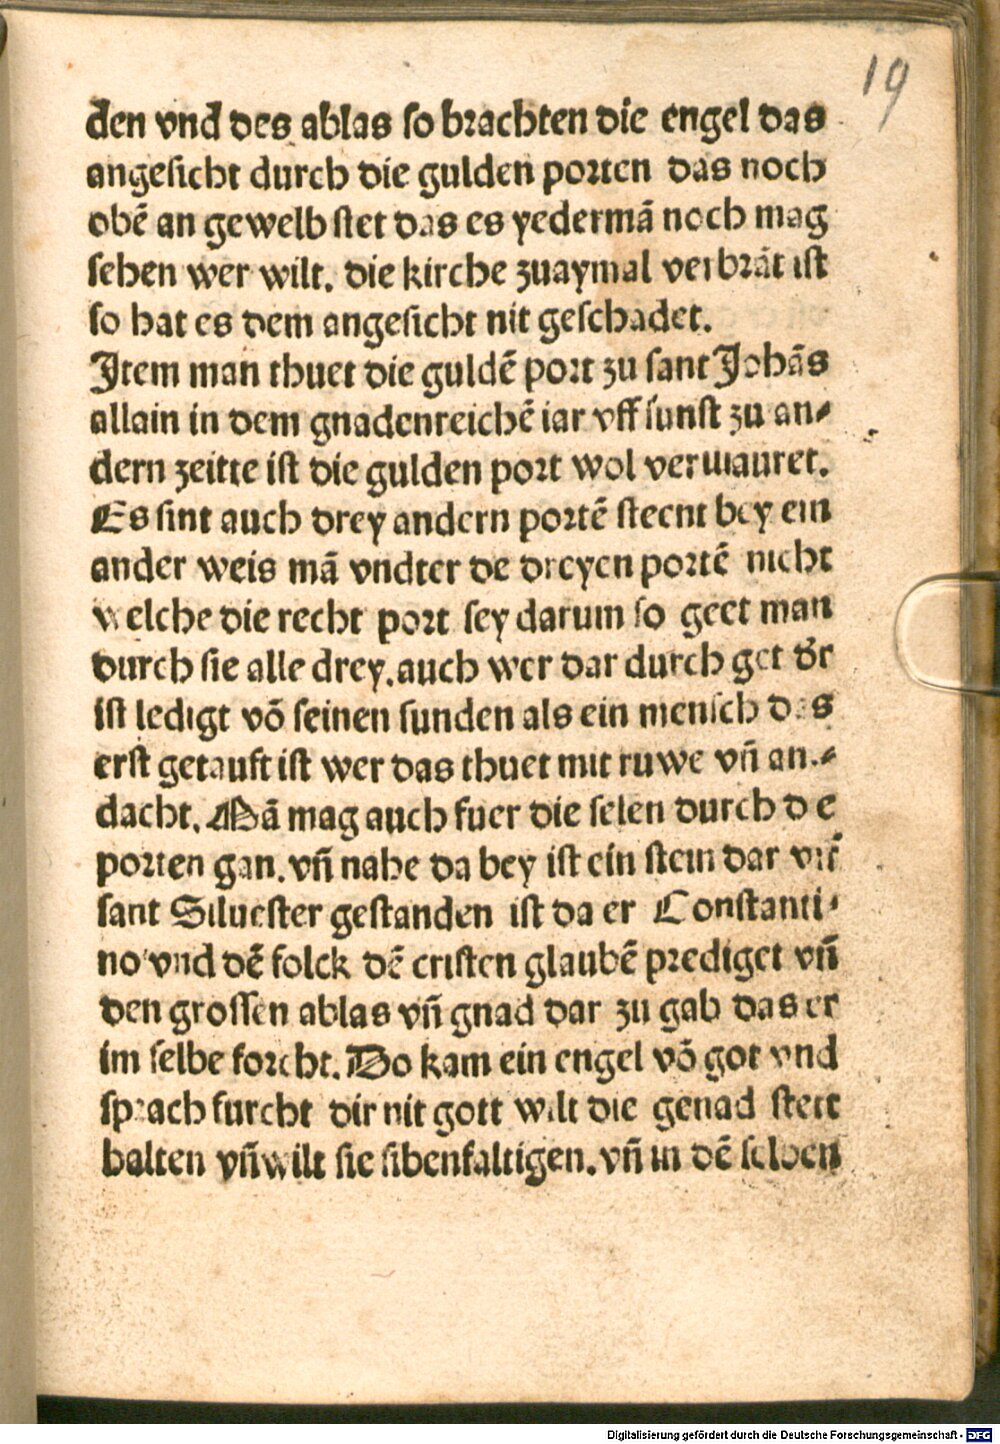 19
den vnd des ablas so brachten die engel das
angesicht durch die gulden porten das noch
obẽ an gewelb stet das es yedermã noch mag
sehen wer wilt. die kirche zuaymal verbrãt ist
so hat es dem angesicht nit geschadet.
Item man thuet die guldẽ port zu sant Johãs
allain in dem gnadenreichẽ iar vff sunst zu an⸗
dern zeitte ist die gulden port wol vermauret.
Es sint auch drey andern portẽ steent bey ein
ander weis mã vndter de dreyen portẽ nicht
welche die recht port sey darum so geet man
durch sie alle drey. auch wer dar durch get der
ist ledigt võ seinen sunden als ein mensch das
erst getauft ist wer das thuet mit ruwe vñ an⸗
dacht. Mã mag auch fuer die selen durch die
porten gan. vñ nahe da bey ist ein stein dar vff
sant Siluester gestanden ist da er Constanti⸗
no vnd dẽ folck dẽ cristen glaubẽ prediget vñ
den grossen ablas vñ gnad dar zu gab das er
im selbe forcht. Do kam ein engel võ got vnd
sprach furcht dir nit gott wilt die genad stett
halten vñ wilt sie sibenfaltigen. vñ in dẽ selben
Digitalisierung gefördert durch die Deutsche Forschungsgemeinschaft - DFG